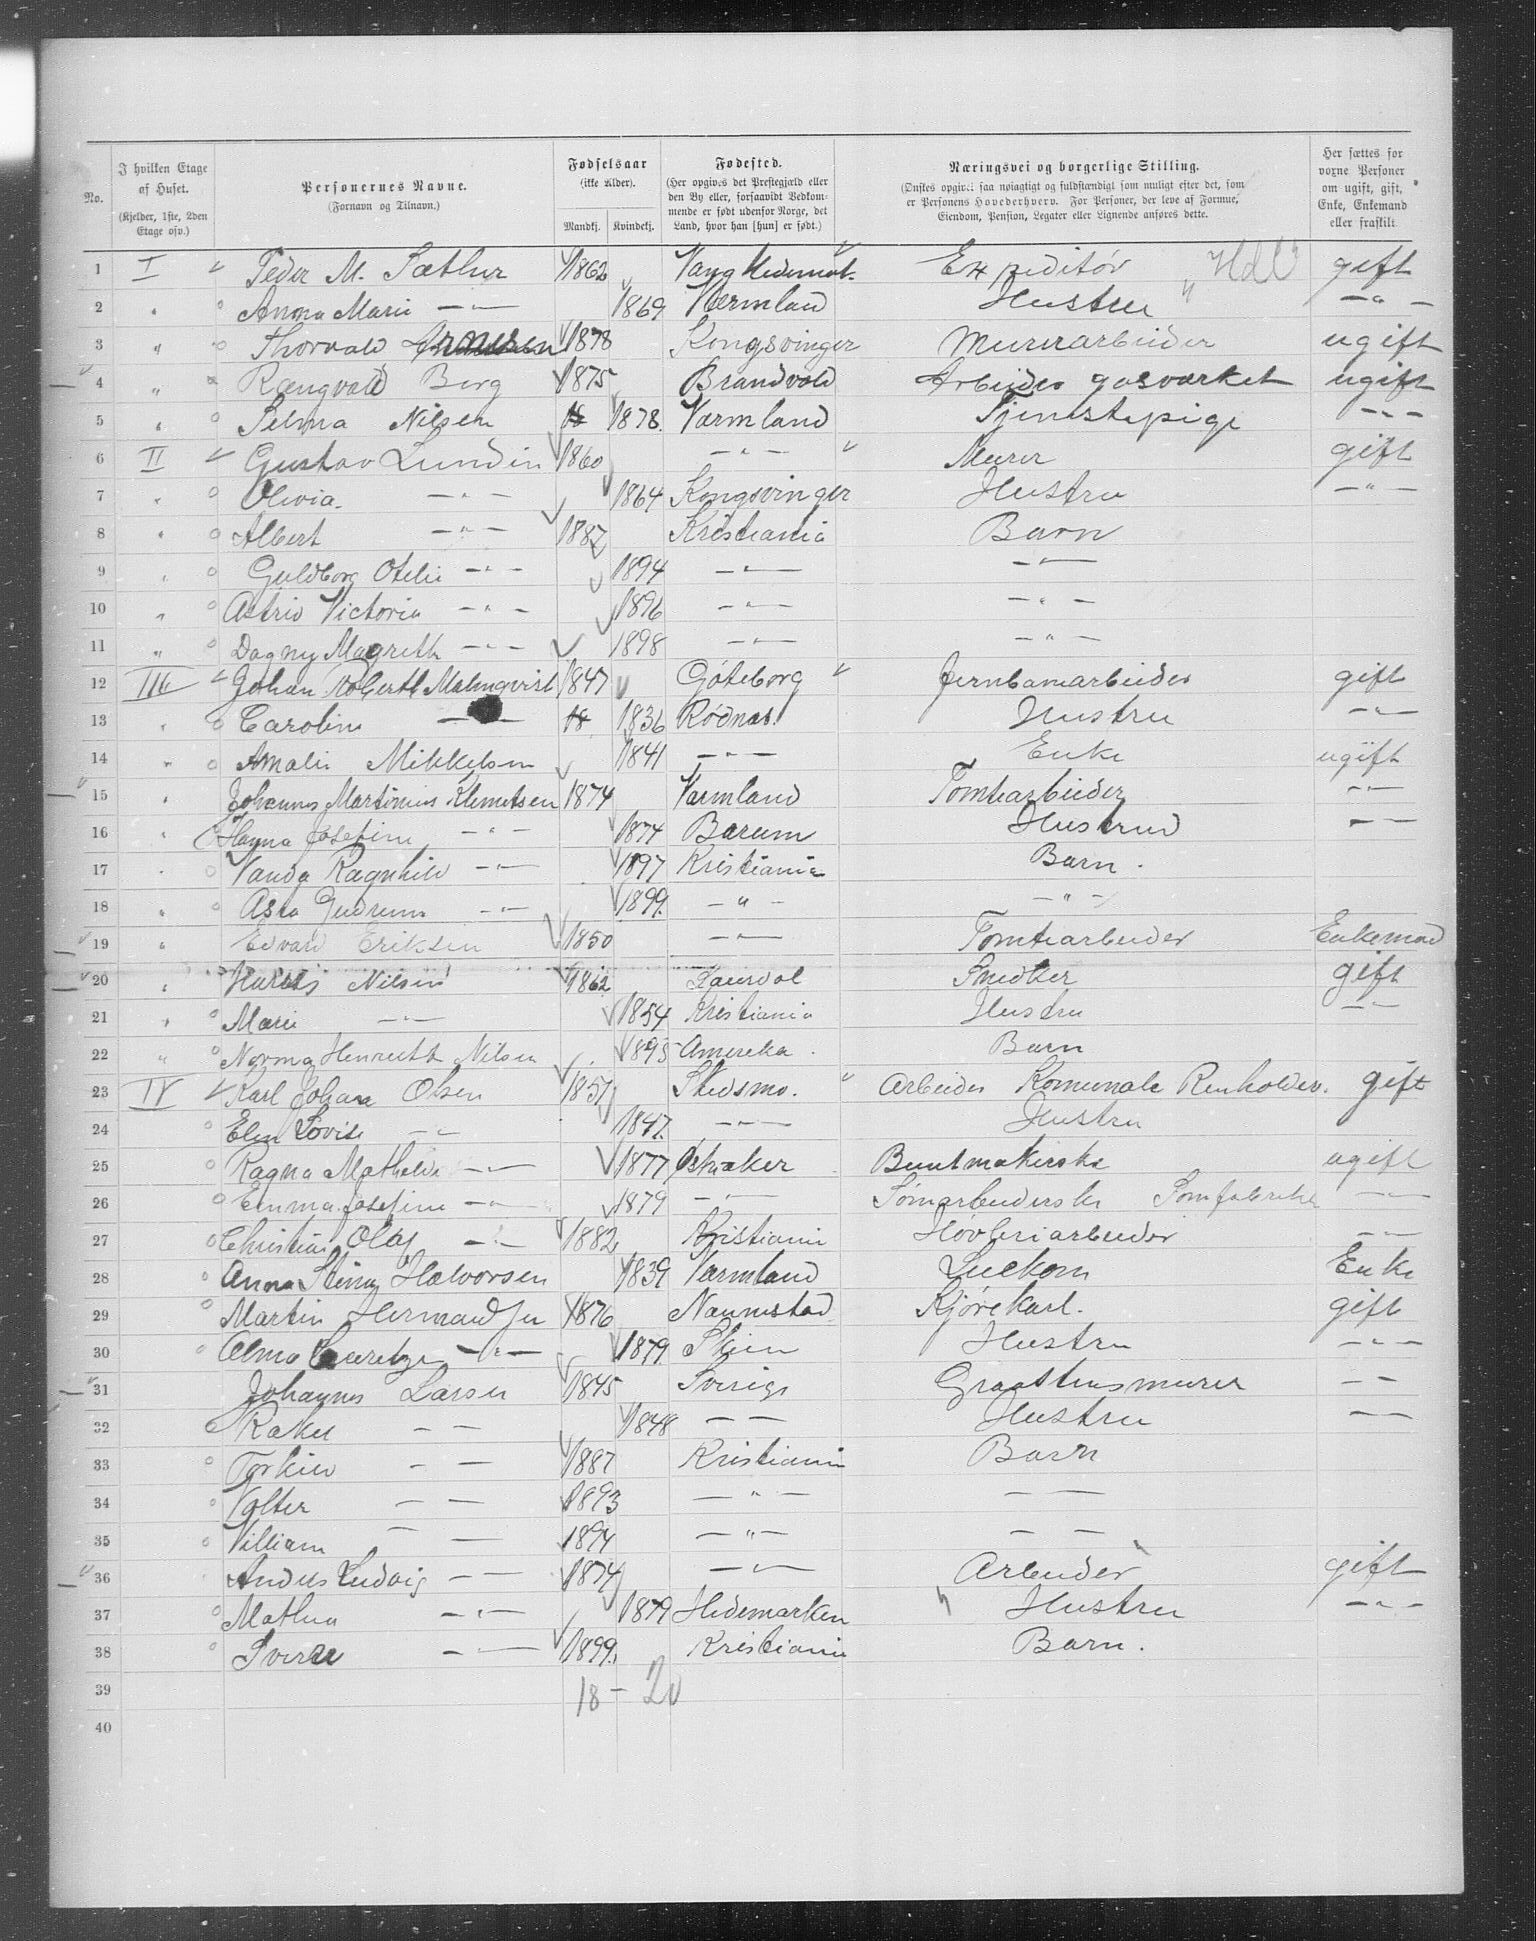 No. | I hvilken Etage af Huset. (Kjelder, 1ste, 2den Etage osv.) | Personernes Navne. (Fornavn og Tilnavn.) | Fødselsaar (ikke Alder). Mandkj. Kvindekj. | Fødested. (Her opgives det Prestegjæld eller den By eller, forsaavidt Vedkommende er født udenfor Norge, det Land, hvor han [hun] er født.) | Næringsvei og borgerlige Stilling. (Ønskes opgivet saa nøiagtigt og fuldstændigt som muligt efter det, som er Personens Hovederhverv. For Personer, der leve af Formue, Eiendom, Pension, Legater eller Lignende anføres dette.) | Her sættes for voxne Personer om ugift, gift, Enke, Enkemand eller fraskilt.
1 I Peder M. Sæther 1862 Vang Hedemark. Expeditør gift
2 " Anna Marie — " — 1869 Værmland Hustru — " —
3 " Thorvald 1878 Kongsvinger Murerarbeider ugift
4 " Rængvald Berg 1875 Brandvold Arbeider gasværket ugift
5 " Selma Nilsen 18 1878. Værmland Tjenestepige — " —
6 II Gustav Lundin 1860 — " — Murer gift
7 " Olivia. — " — 1864 Kongsvinger Hustru — " —
8 " Albert — " — 1887 Kristiania Barn
9 " Guldborg Otelie — " — 1894 — " — — " —
10 " Astrid Victoria — " — 1896 — " — — " —
11 " Dagny Magreth — " — 1898 — " — — " —
12 III Johan Robertt Malmqvist 1847 Göteborg Jernbanarbeider gift
13 " Caroline — " — 18 1836 Rødnæs. Hustru — " —
14 " Amalie Mikkelsen 1841 — " — Enke ugift
15 " Johannes Martinius Klemetsen 1874 Værmland Tomtearbeider — " —
16 " Josefine — " — 1874 Bærum Hustrud — " —
17 " Vanda Ragnhild — " — 1897 Kristiania Barn.
18 " Asta Gudrun — " — 1899. — " — — " —
19 " Edvard Eriksen 1850 — " — Tomtearbeider Enkemand
20 " Nilsen 1862 Smedker gift
21 " Marie — " — 1854 Kristiania Hustru — " —
22 " Norma Henriette Nilsen 1895 Amereka. Barn
23 IV Karl Johan Olsen 1857 Skedsmo. Arbeider Komunale Renholdev. gift
24 Elen Lovise — " — 1847. — " — Hustru
25 Ragna Mathelde — " — 1877 Østraker Buntmakerske ugift
26 Emma Josefine — " — 1879 — " — Sømarbeiderske Sømfabrike — " —
27 Christian Olaf — " — 1882 Kristiania Høvleriarbeider — " —
28 Anna Stina Halvorsen 1839 Værmland Enke
29 Martin Hermandsen 1876 Naunestad Kjørekarl. gift
30 Alma Lauretze — " — 1879 Skien Hustru — " —
31 Johannes Larsen 1845 Sverige Graastensmurer — —
32 Rakel — — 1848 — — Hustru — —
33 Torkild — — 1887 Kristiania Barn
34 Valter — — 1893 — " — — —
35 Villiam — — 1894 — " — — —
36 Anders Ludvig — — 1874 — " — Arbeider gift
37 Mathea — " — 1879 Hedemarken Hustru — " —
38 Sverre — " — 1899. Kristiania Barn.
39 18 – 20
40